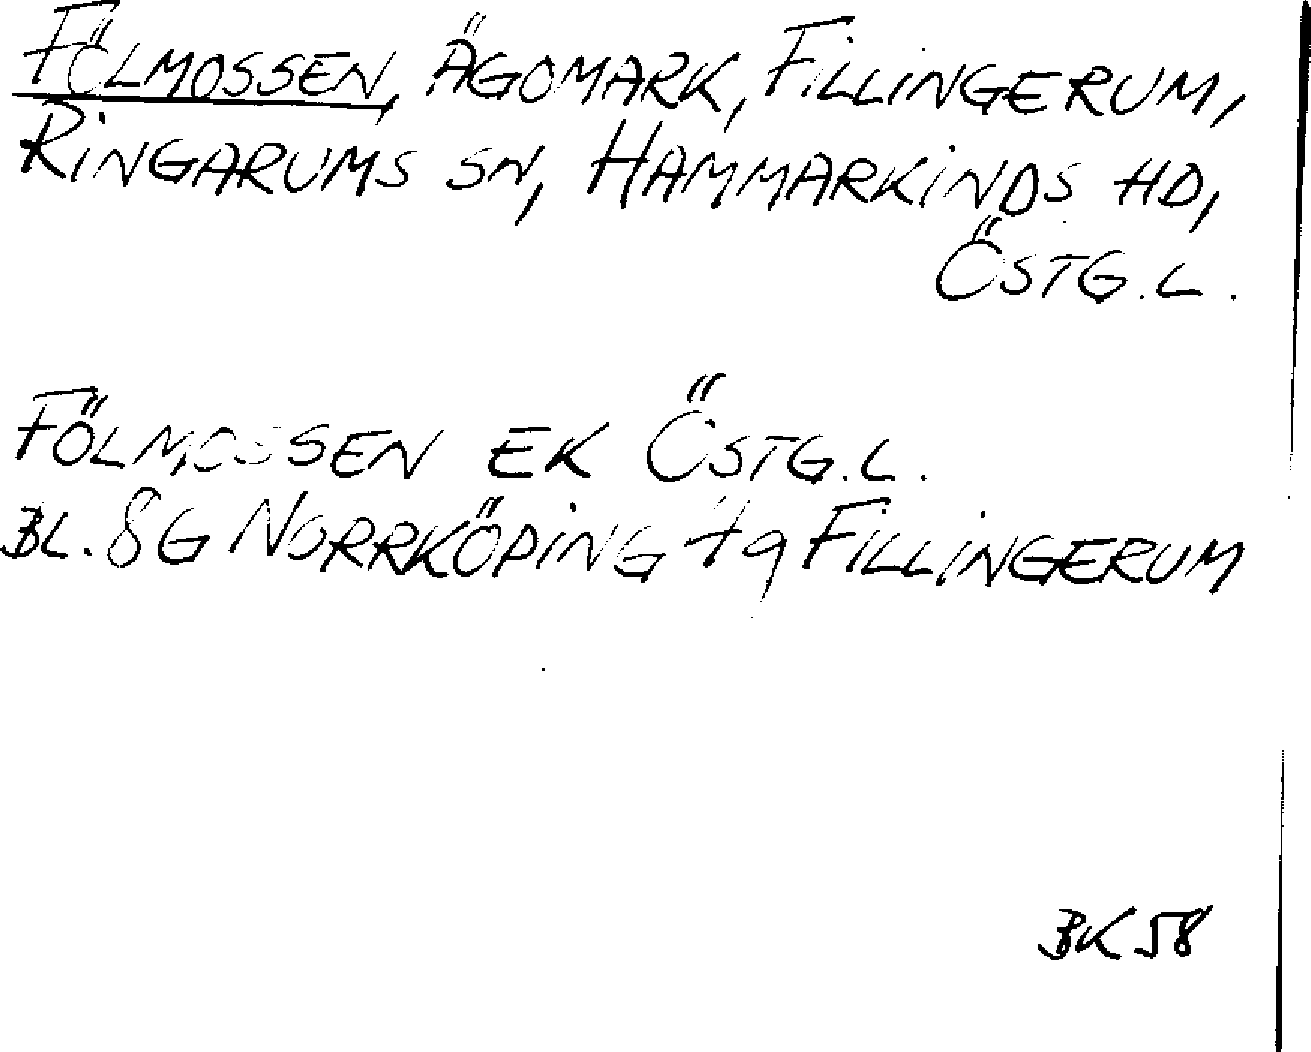 FÖLMOSSEN, ÄGOMARK, FILLINGERUM,
RINGARUMS SN, HAMMARKINDS HD,
ÖSTG.L.
FÖLMOSSEN EK ÖSTG.L.
BL. 8G NORRKÖPING 49 FILLINGERUM
BK 58